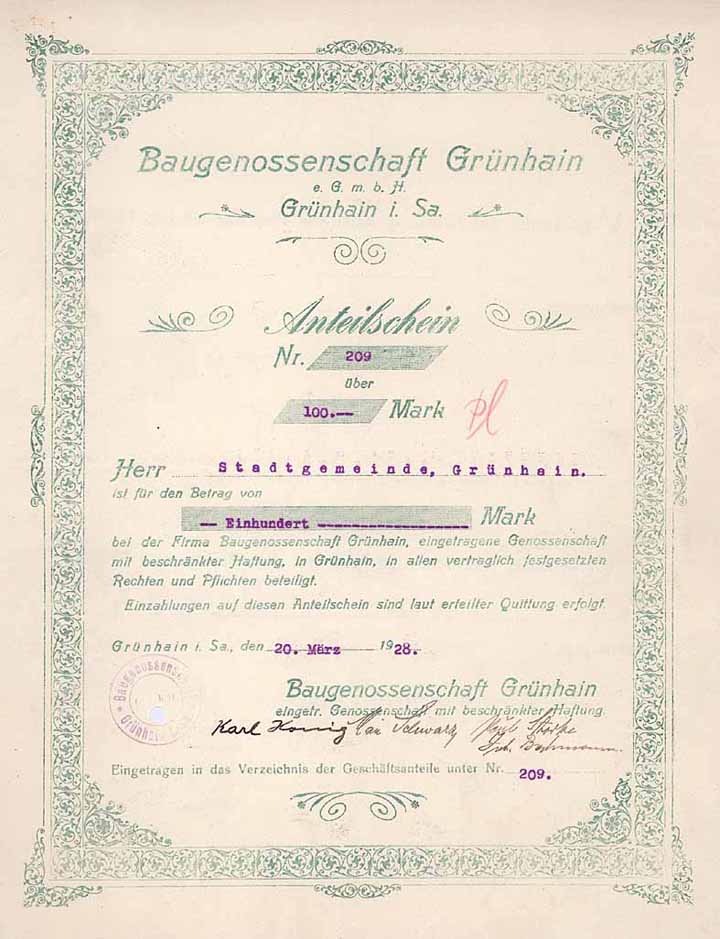 Baugenossenschaft Grünhain
e. G. m. b. H.
Grünhain i. Sa.
Anteilschein
Nr. 209
über
100.-- Mark
Pl
Herr Stadtgemeinde, Grünhain.
ist für den Betrag von
-- Einhundert ------------------ Mark
bei der Firma Baugenossenschaft Grünhain, eingetragene Genossenschaft
mit beschränkter Haftung, in Grünhain, in allen vertraglich festgesetzten
Rechten und Pflichten beteiligt.
Einzahlungen auf diesen Anteilschein sind laut erteilter Quittung erfolgt.
Grünhain i. Sa., den 20. März 1928.
Baugenossenschaft Grünhain
eingetr. Genossenschaft mit beschränkter Haftung.
Karl König Schwarz
Eingetragen in das Verzeichnis der Geschäftsanteile unter Nr. 209.